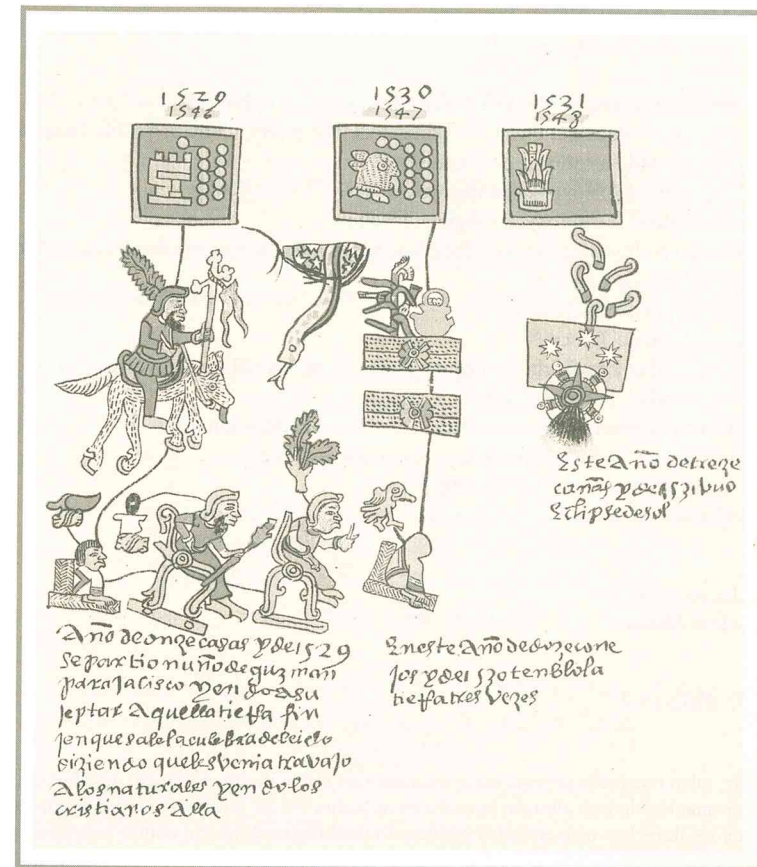 1529
1546
1530
1547
1531
1548
Este Año de treze
cañas y de 1531 hubo
Eclipse de sol
Año de onze casas y de 1529
se partio nuño de guzman
para Jalisco yendo a su
jeptar Aquella tierra fin
jen que sale la culebra del cielo
diziendo que les venia travajo
A los naturales yendo los
cristianos Alla
En este Año de doze cone
jos y de 1530 tenblo la
tierra tres vezes